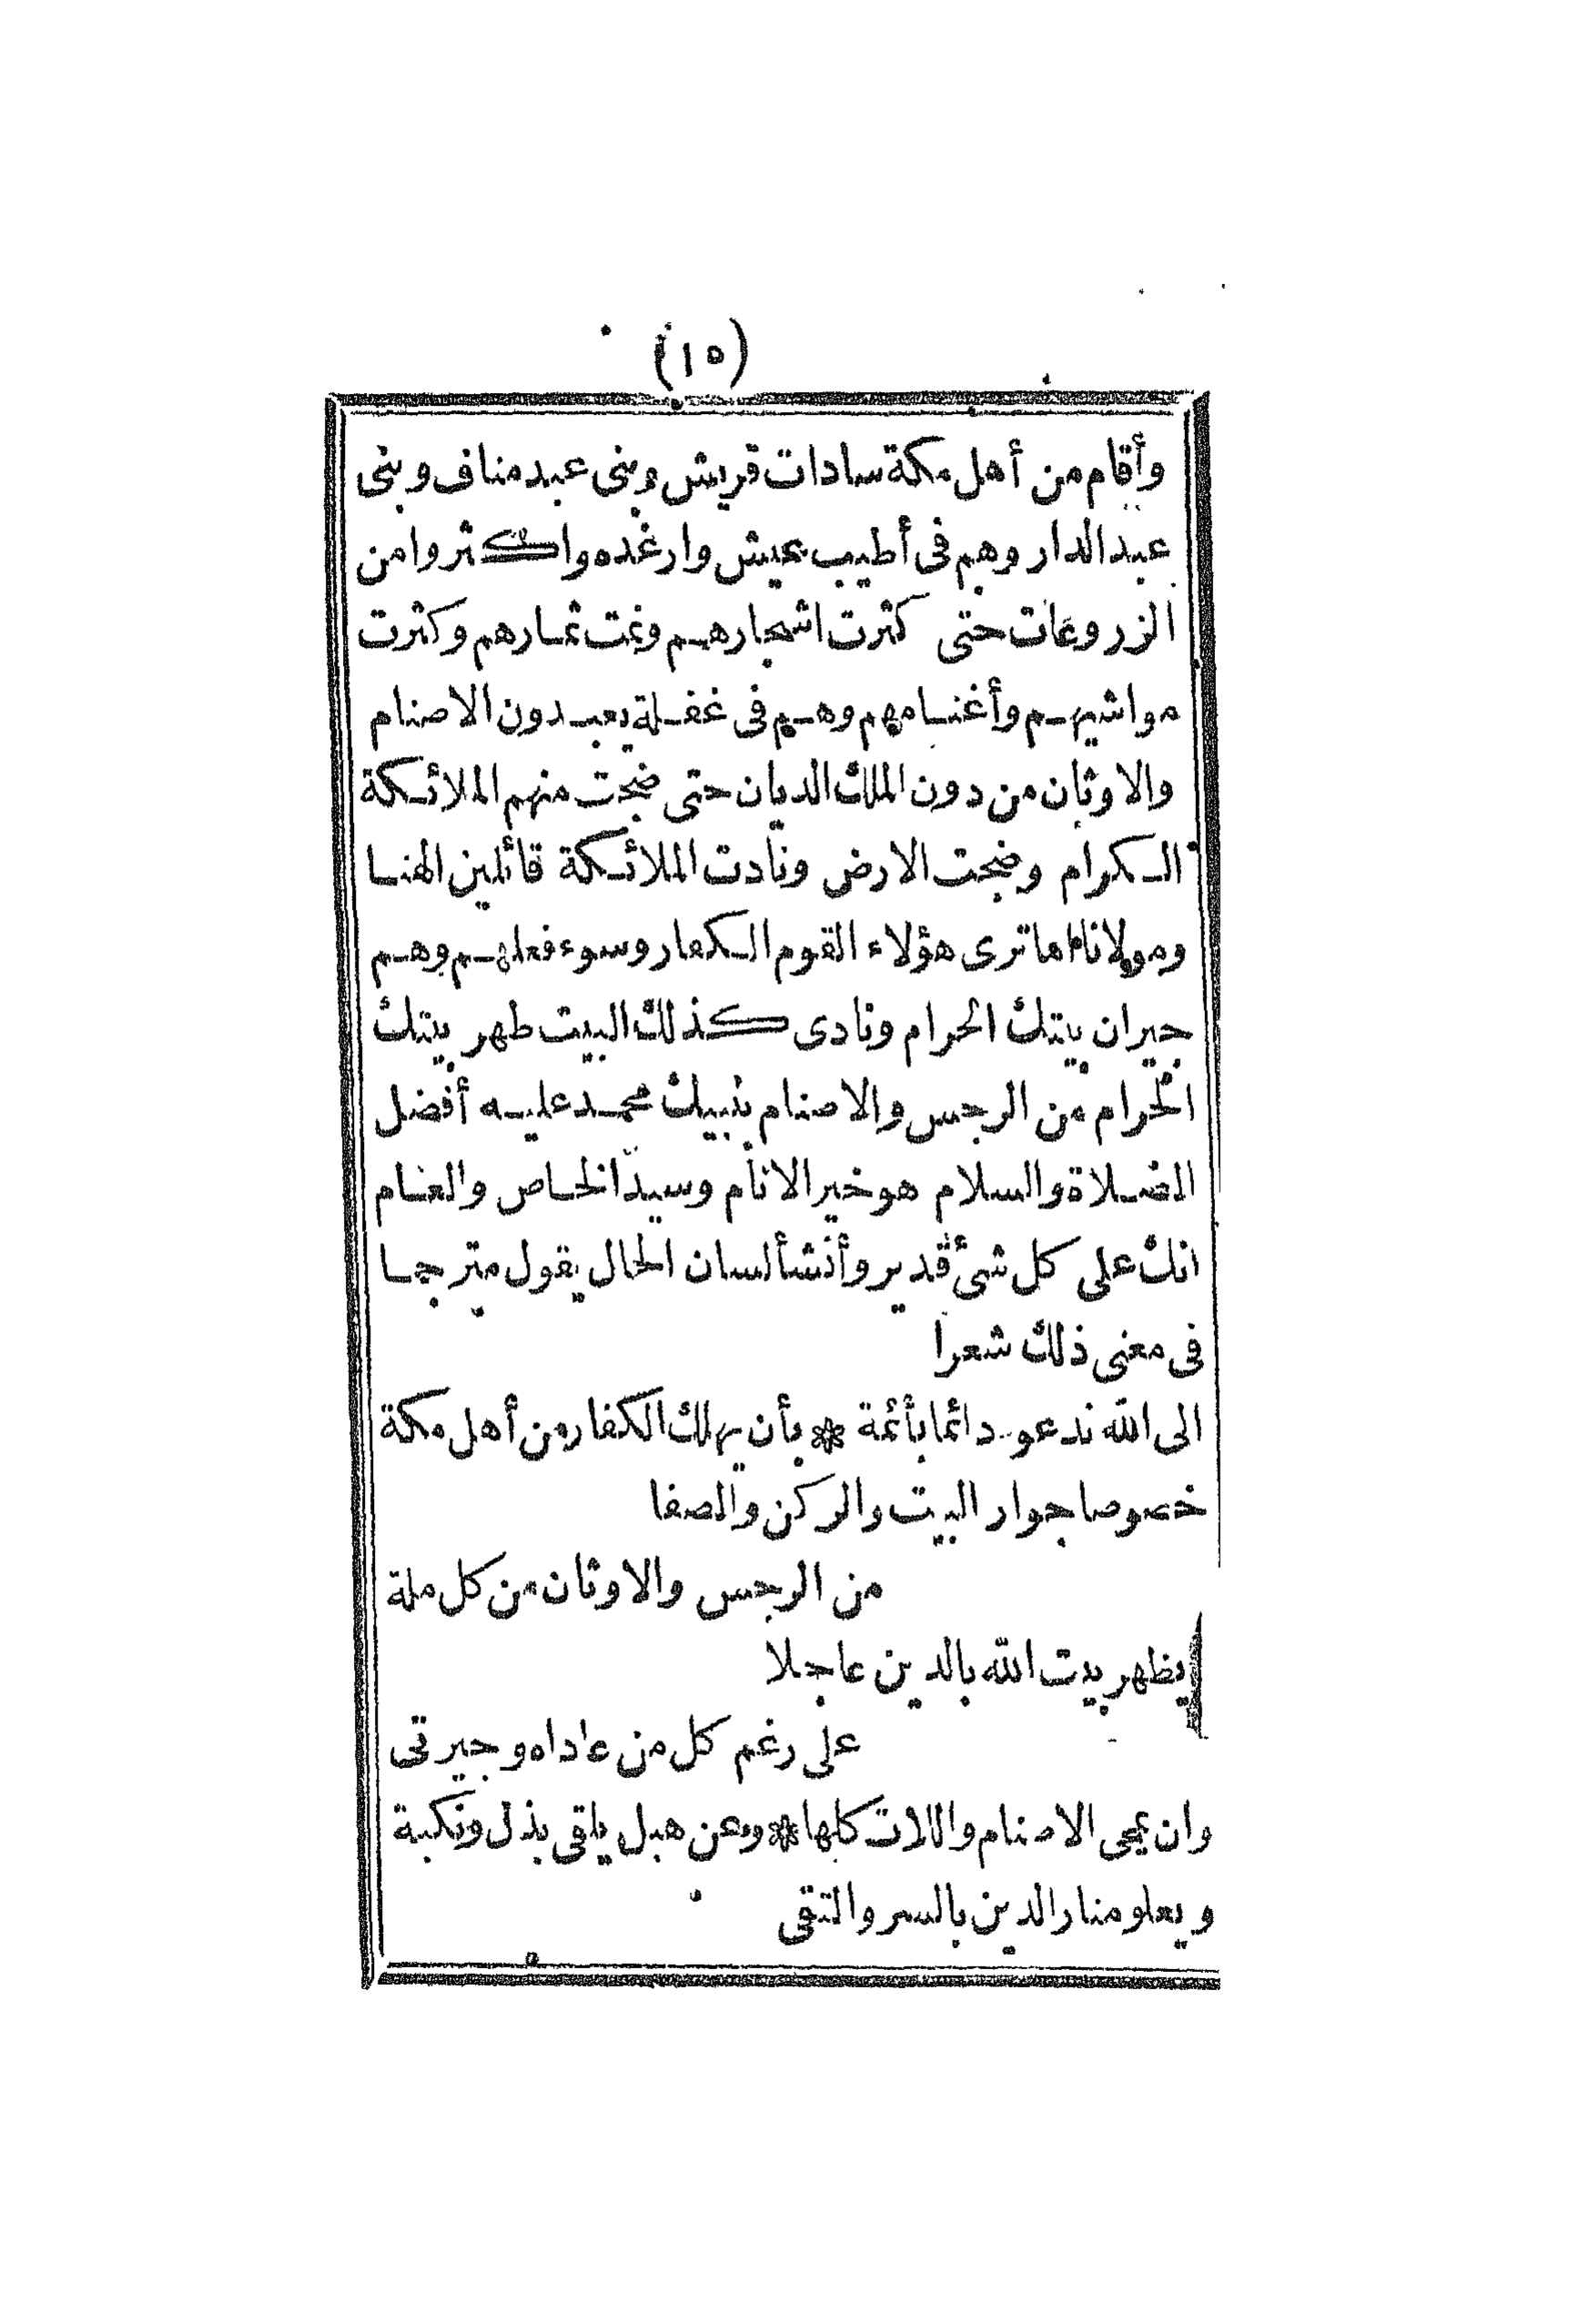 (١٥)
وأقام من أهل مكة سادات قريش وبنى عبد مناف وبنى
عبد الدار وهم فى أطيب عيش وارغده واكثروا من
الزروعات حتى كثرت اشجارهم ونمت ثمارهم وكثرت
مواشيهم وأغنامهم وهم فى غفلة يعبدون الاصنام
والاوثان من دون الملك الديان حتى ضجت منهم الملائكة
الكرام وضجت الارض ونادت الملائكة قائلين الهنا
ومولانا اما ترى هؤلاء القوم الكفار وسوء فعلهم وهم
جيران بيتك الحرام ونادى كذلك البيت طهر بيتك
الحرام من الرجس والاصنام بنبيك محمد عليه أفضل
الصلاة والسلام هو خير الانام وسيد الخاص والعام
انك على كل شئ قدير وأنشأ لسان الحال يقول مترجما
فى معنى ذلك شعرا
الى الله ندعو دائما بأئمة * بأن يهلك الكفار من أهل مكة
خصوصا جوار البيت والركن والصفا
من الرجس والاوثان من كل ملة
يظهر بيت الله بالدين عاجلا
على رغم كل من عاداه وجيرتى
وان يمحى الاصنام واللات كلها * وعن هبل يلقى بذل ونكبة
ويعلو منار الدين بالسر والتقى